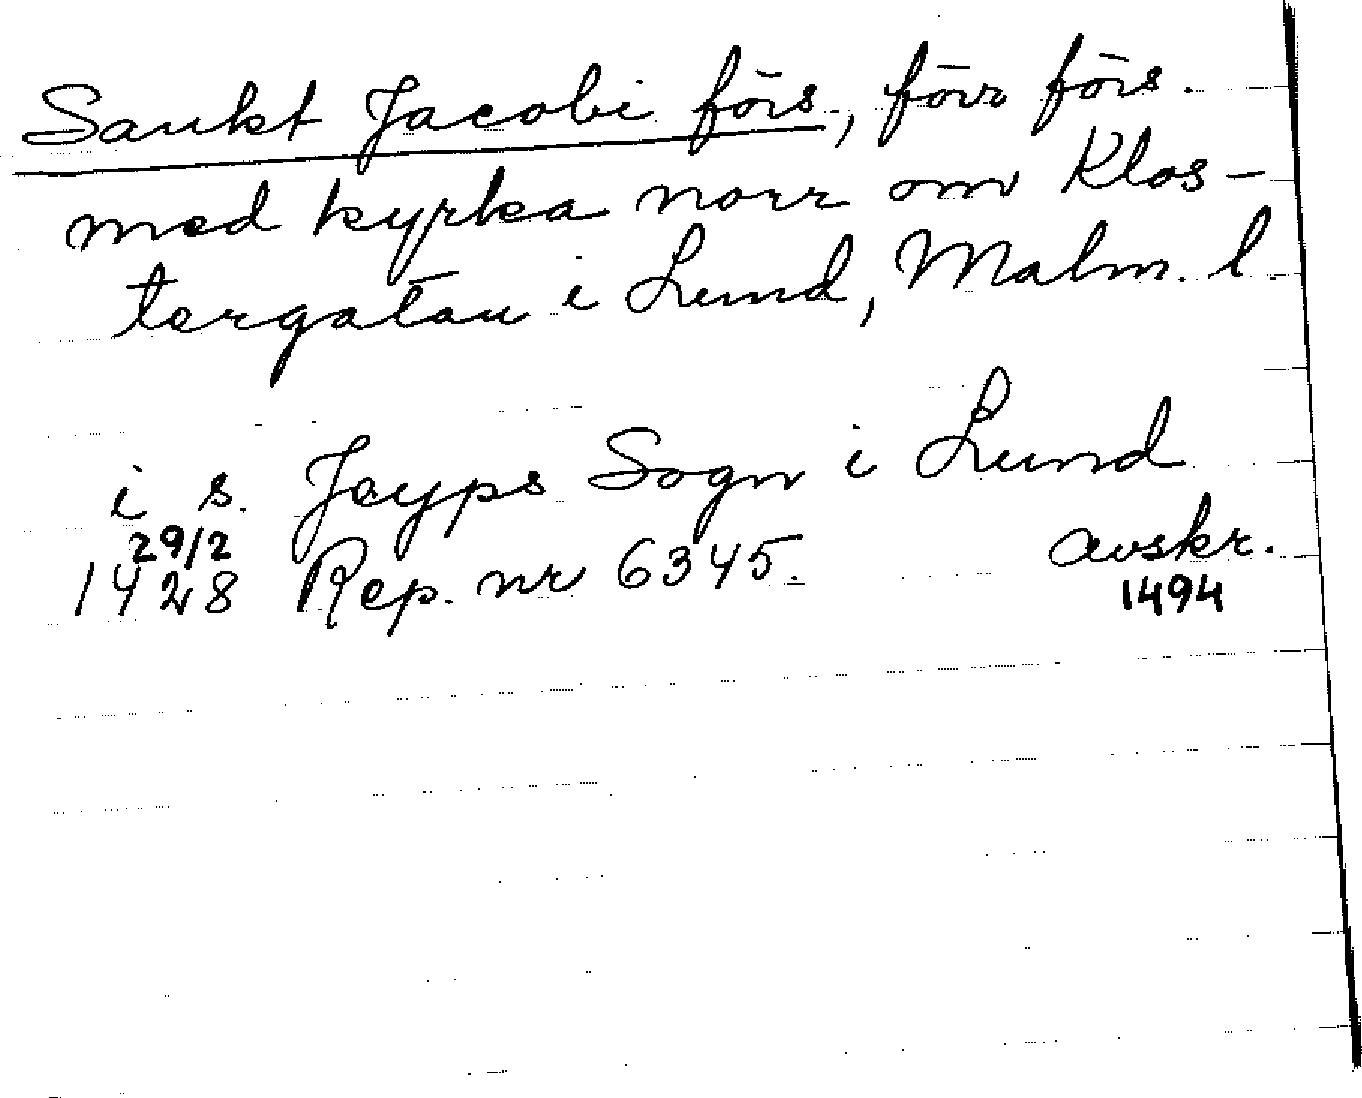 Sankt Jacobi förs., förr förs.
med kyrka norr om Klos-
tergatan i Lund, Malm. l.
i s. Jeyps Sogn i Lund
29/2
1428 Rep. nr 6345. avskr.
1494